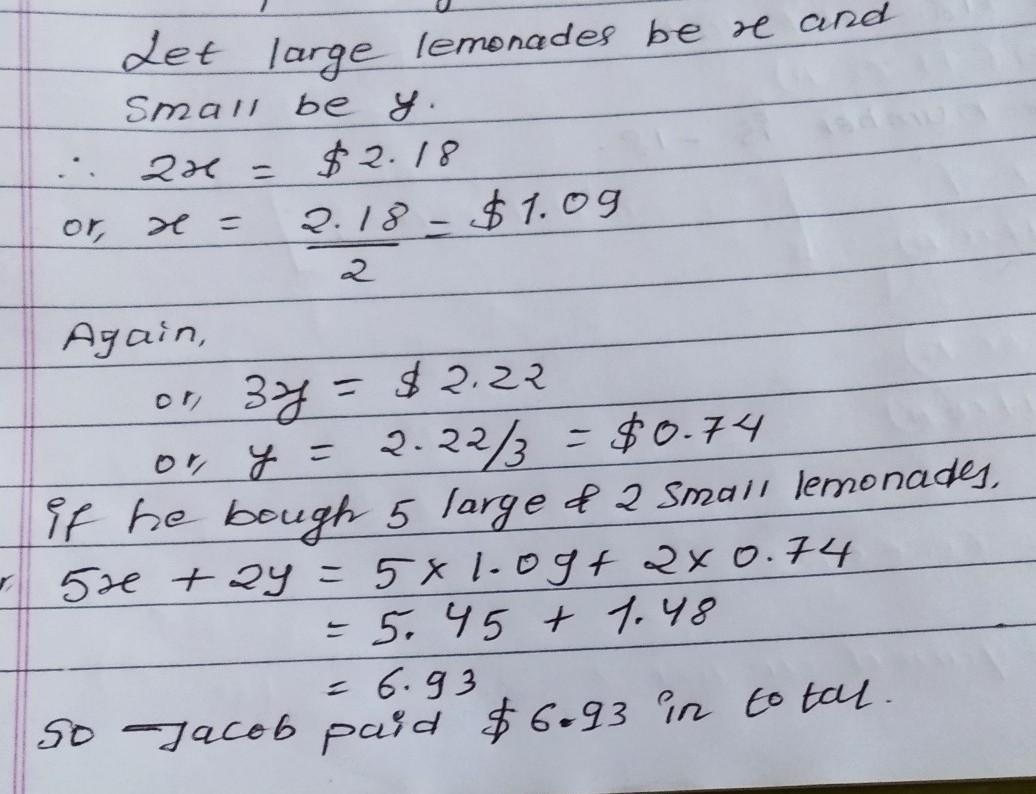 Let large lemonades be x and
small be y.
∴ 2x = $2.18
or, x = 2.18/2 = $1.09
Again,
or, 3y = $2.22
or, y = 2.22/3 = $0.74
if he bough 5 large & 2 small lemonades.
5x + 2y = 5 × 1.09 + 2 × 0.74
= 5.45 + 1.48
= 6.93
So Jacob paid $6.93 in total.